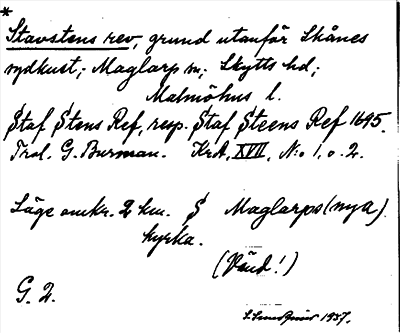 *
Stavstens rev, grund utanför Skånes
sydkust; Maglarp sn; Skytts hd;
Malmöhus l.
Staf Stens Ref, resp. Staf Steens Ref 1695.
Trol. G. Burman. KrA, XVII, N:o 1, o. 2.
Läge omkr. 2 km. S Maglarps (nya)
kyrka.
(Vänd!)
G. 2.
1937.